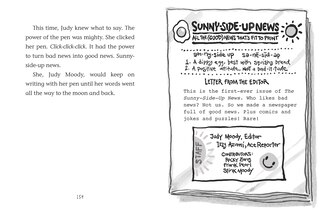 This time, Judy knew what to say. The
power of the pen was mighty. She clicked
her pen. Click-click-click. It had the power
to turn bad news into good news. Sunny-
side-up news.
She, Judy Moody, would keep on
writing with her pen until her words went
all the way to the moon and back.
154
SUNNY-SIDE-UP NEWS
ALL THE (GOOD) NEWS THAT'S FIT TO PRINT
1. A dippy egg, best with
2. A positive attitude, not a bad-itude.
LETTER FROM THE EDITOR
This is the first-ever issue of The
Sunny-Side-Up News. Who likes bad
news? Not us. So we made a newspaper
full of good news. Plus comics and
jokes and puzzles! Rare!
STAFF
Judy Moody, Editor
Izzy Azumi, Ace Reporter
Contributors:
Rocky Zang
Frank Pearl
Stink Moody